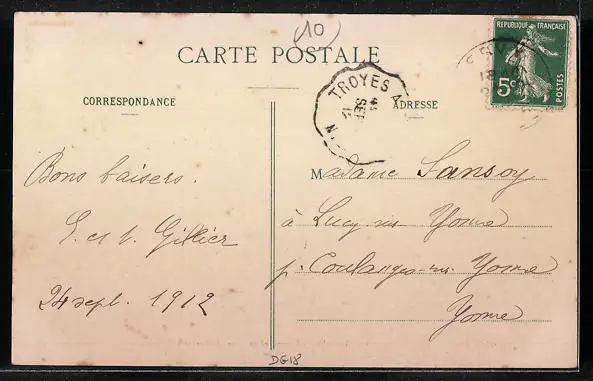 (10)
CARTE POSTALE
RÉPUBLIQUE FRANÇAISE
5c
POSTES
TROYES A
SEPT
CORRESPONDANCE
ADRESSE
Bons baisers.
Gillier
24 sept. 1912
Madame Sansoy
à Lucy sur Yonne
p. Coulanges-sur-Yonne
Yonne
DG18